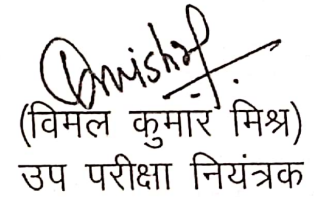 (विमल कुमार मिश्र)
उप परीक्षा नियंत्रक